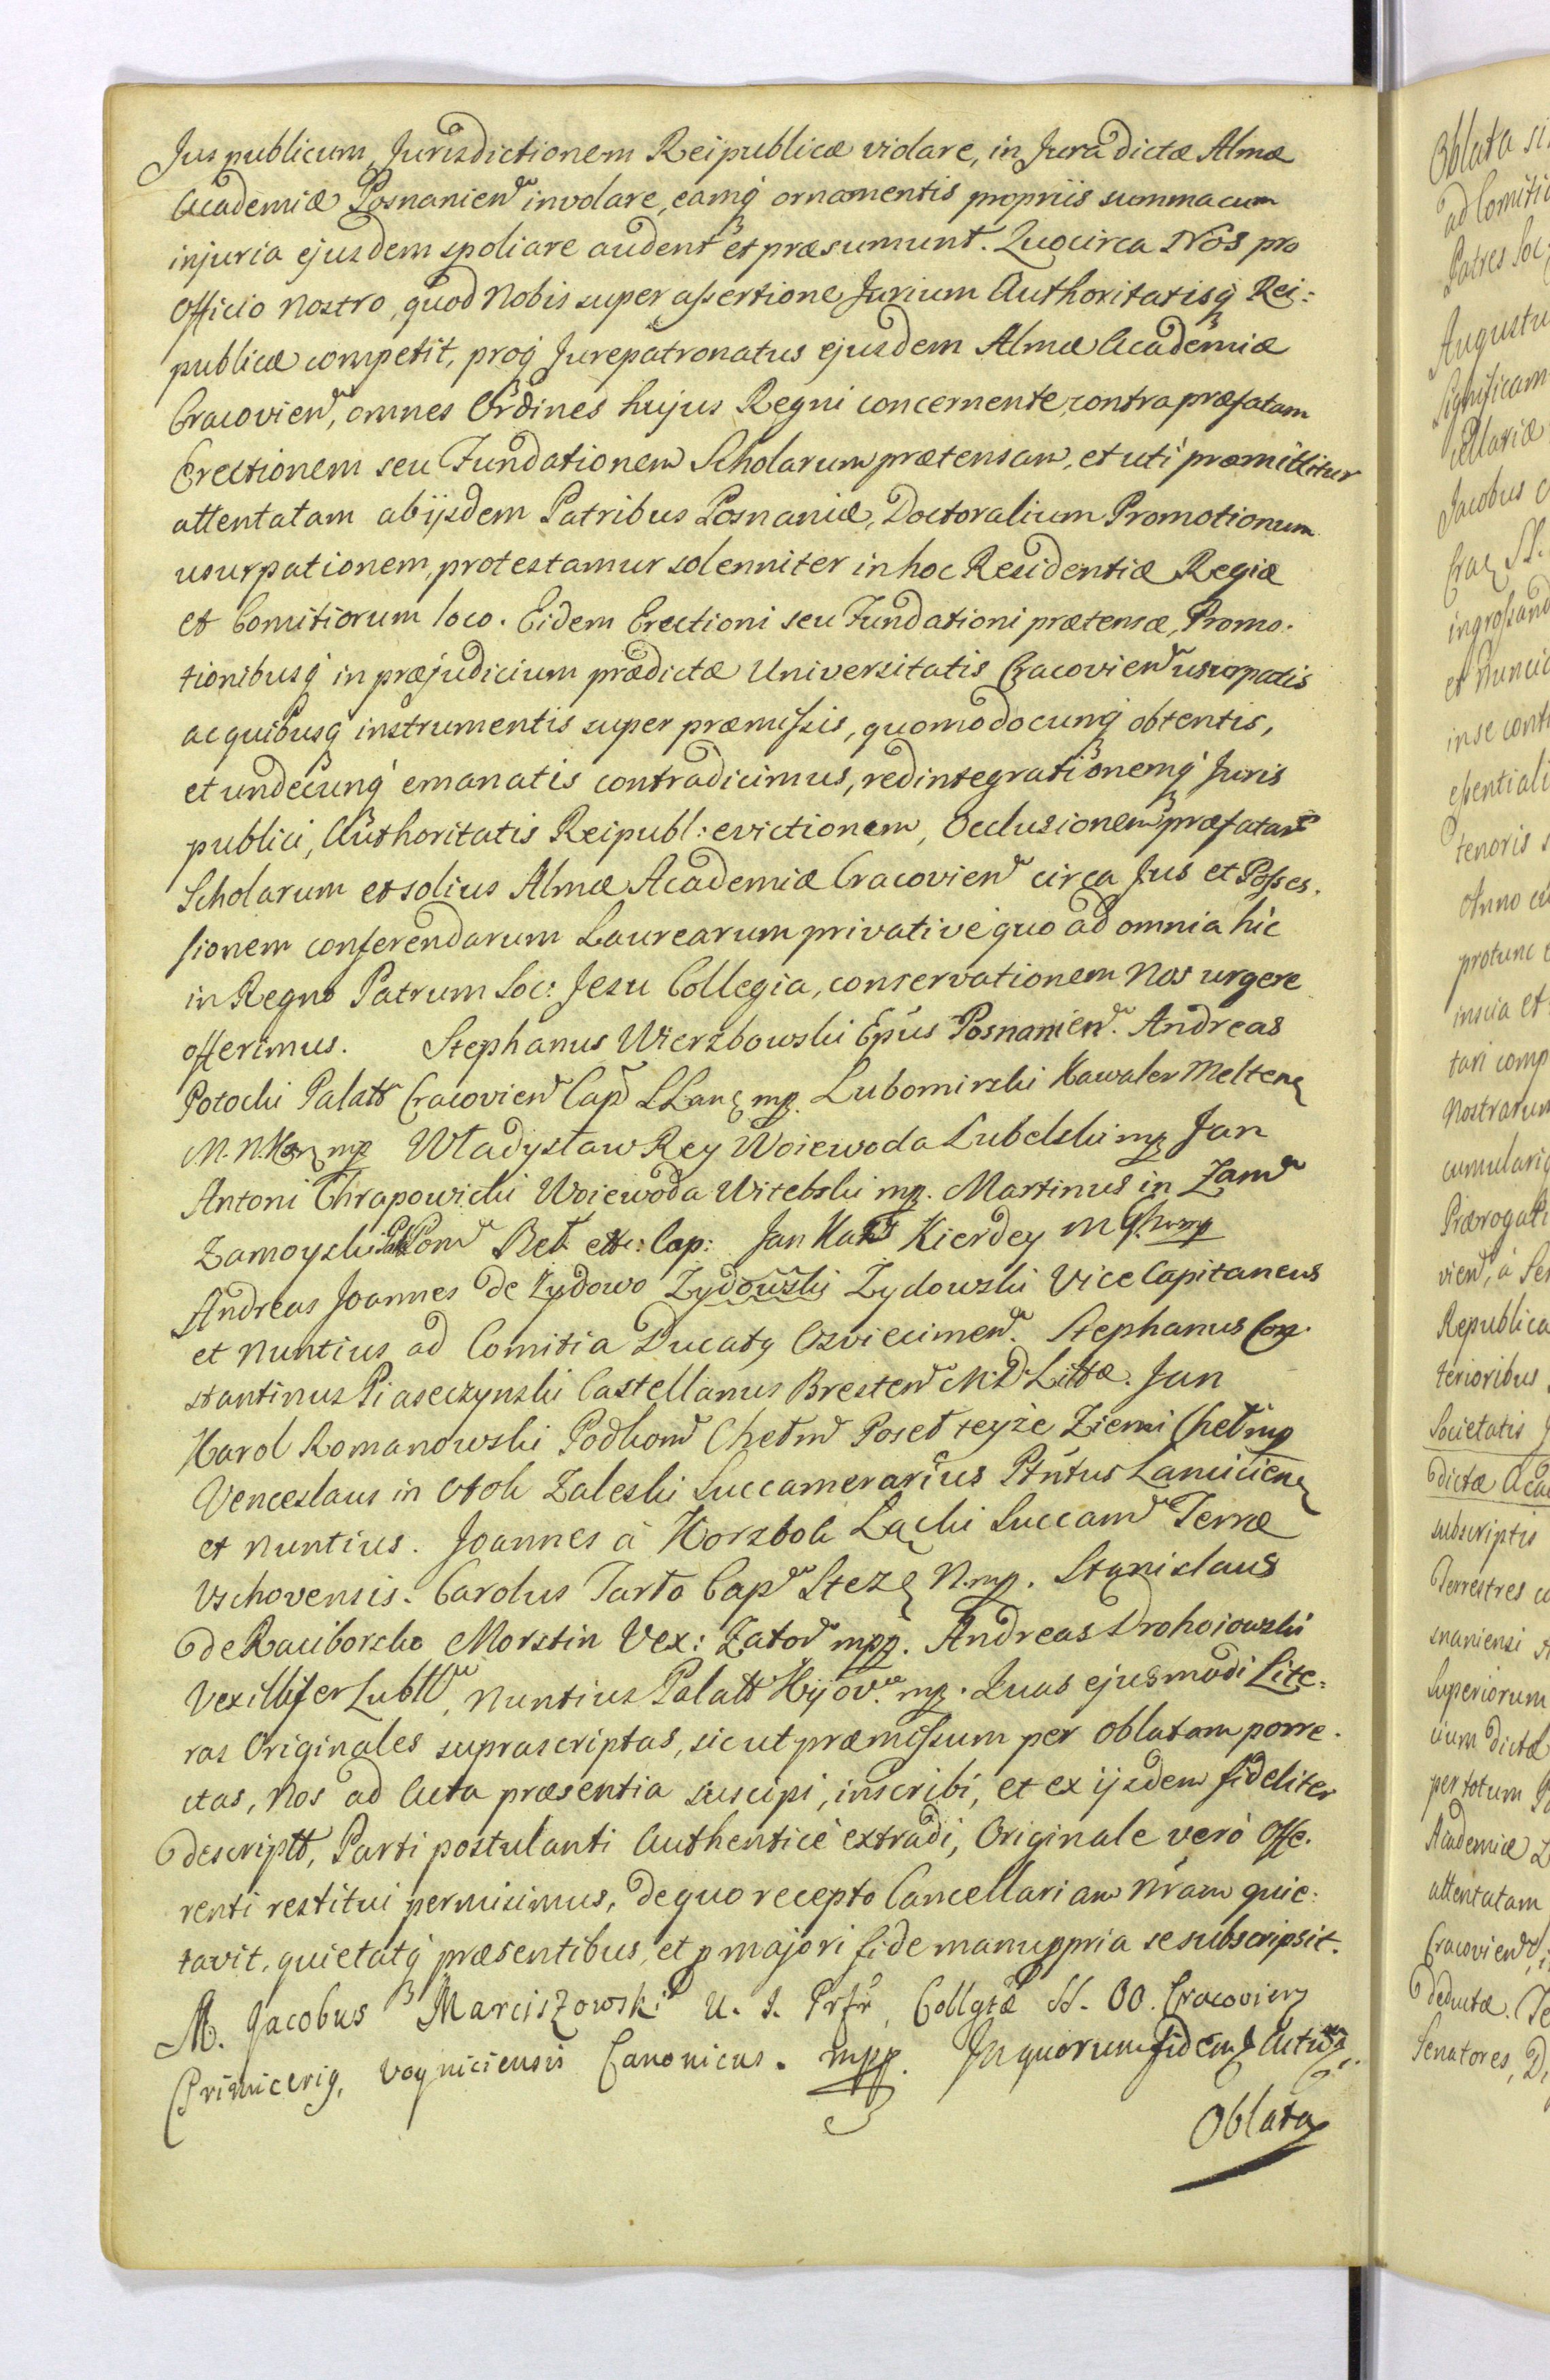 Jus publicum, Jurisdictionem Reipublicæ violare, in Jura dictæ Almæ
Academiæ Posnanien̄ involare, eamq́ ornamentis propriis summa cum
injuria ejusdem spoliare audent et præsumunt. Quocirca Nos pro
Officio Nostro, quod Nobis super assertione Jurium Authoritatisq́ Rei:
publicæ competit, proq́ Jurepatronatus ejusdem Almæ Academiæ
Cracovien̄, omnes Ordines hujus Regni concernente, contra præfatam
Erectionem seu Fundationem Scholarum prætensam, et uti præmittitur
attentatam ab ijsdem Patribus Posnaniæ, Doctoralium Promotionum
usurpationem, protestamur solenniter in hoc Residentiæ Regiæ
et Comitiorum loco. Eidem Erectioni seu Fundationi prætensæ, Promo-
tionibusq́ in præjudicium prædictæ Universitatis Cracovien̄ usurpatis
ac quibusq́ instrumentis super præmissis, quomodocunq́ obtentis,
et undecunq́ emanatis contradicimus, redintegrationemq́ Juris
publici, Authoritatis Reipubl: evictionem, Occlusionem præfatar̄
Scholarum et solius Almæ Academiæ Cracovien̄ circa Jus et Posses-
sionem conferendarum Laurearum privative quo ad omnia hic
in Regno Patrum Soc: Jesu Collegia, conservationem Nos urgere
offerimus. Stephanus Wierzbowski Ep̄us Posnanien̄. Andreas
Potocki Palatt Cracovien̄ Cap̄ mp. Lubomirski Kawaler
M. N. Kor mp Władysław Rey Woiewoda Lubelski mp Jan
Antoni Chrapowicki Woiewoda Witebski mp. Martinus in Zam̄
Zamoyski Cap: Jan Kierdey mp
Andreas Joannes de Zydowo Zydowski Zydowski Vice Capitaneus
et Nuntius ad Comitia Ducatq Osviecimen̄. Stephanus Con-
stantinus Piaseczynski Castellanus Bresten̄ M. D. Littæ. Jan
Karol Romanowski Podkom̄ Chełm̄ Poseł teyże Ziemi Cheł mp
Venceslaus in Otok Zaleski Succamerarius Lanciciens
et Nuntius. Joannes à Korzbok Łącki Succam̄ Terræ
Vschovensis. Carolus Tarło Cap̄ Stez N. mp. Stanislaus
de Raciborsko Morstin Vex: Zator̄ mpp. Andreas Drohoiowski
Vexillifer Lubll̄, Nuntius Palatt Kijov̄. mp. Quas ejusmodi Lite-
ras Originales suprascriptas, sicut præmissum per Oblatam porre-
ctas, Nos ad Acta præsentia suscipi, inscribi, et ex ijsdem fideliter
descriptt, Parti postulanti Authenticè extradi, Originale verò Offe-
renti restitui permisimus, de quo recepto Cancellariam N̄ram quie:
tavit, quietatq́ præsentibus, et p majori fide manu ppria se subscripsit.
M. Jacobus Marciszowski U. J. Prfr̄, Collgtæ SS. OO. Cracovien
Primicerig, Voyniciensis Canonicus. mpp. In quorum fidem
Oblata

Oblata
ad Comitia
Patres Soc
Augustu
Significam
cellariæ
Jacobus
Crac SS.
ingrossand
et Nuncio
in se cont
essentiali
tenoris s
Anno
protunc
inscia et
tari comp
Nostrarum
cumulari
Prærogati
vien̄, à Se
Republica
terioribus
Societatis J
dictæ Aca
subscriptis
Terrestres
snaniensi
Superiorum
cium dictæ
per totum
Academiæ
attentatam
Cracovien̄,
deductæ. Te
Senatores, D